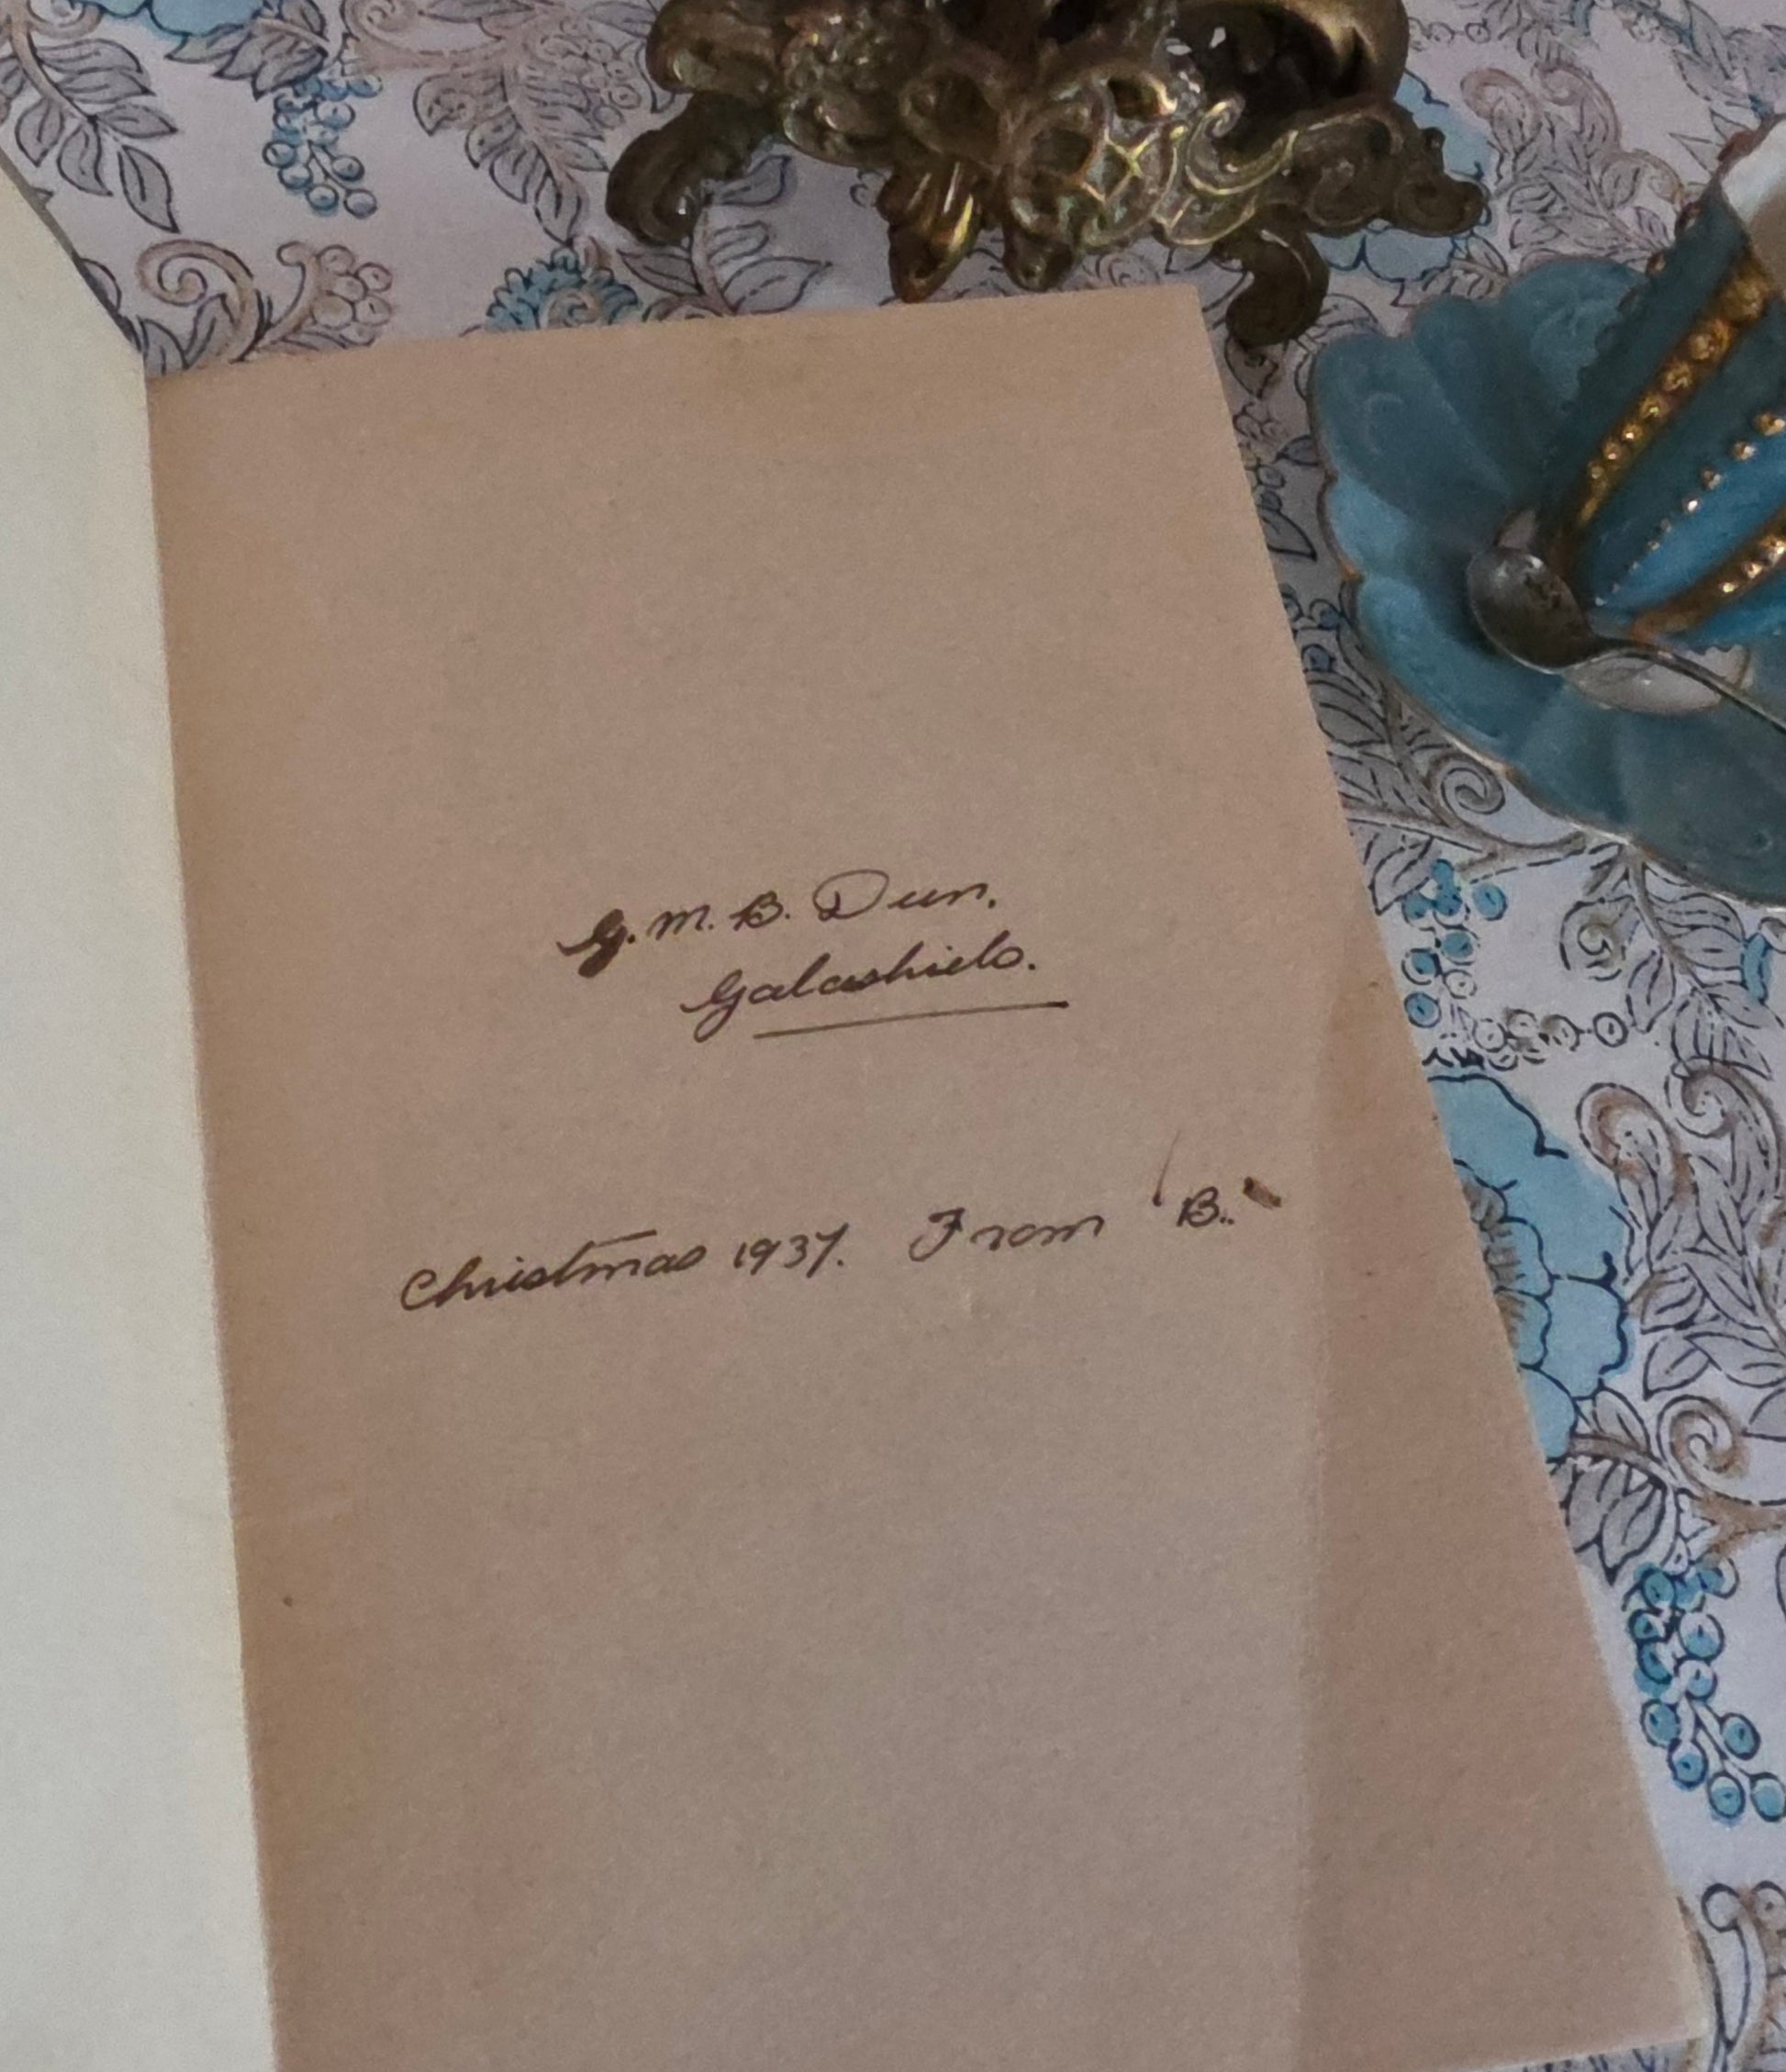 G. M. B. Dun.
Galashiels.
Christmas 1937. From 'B.'